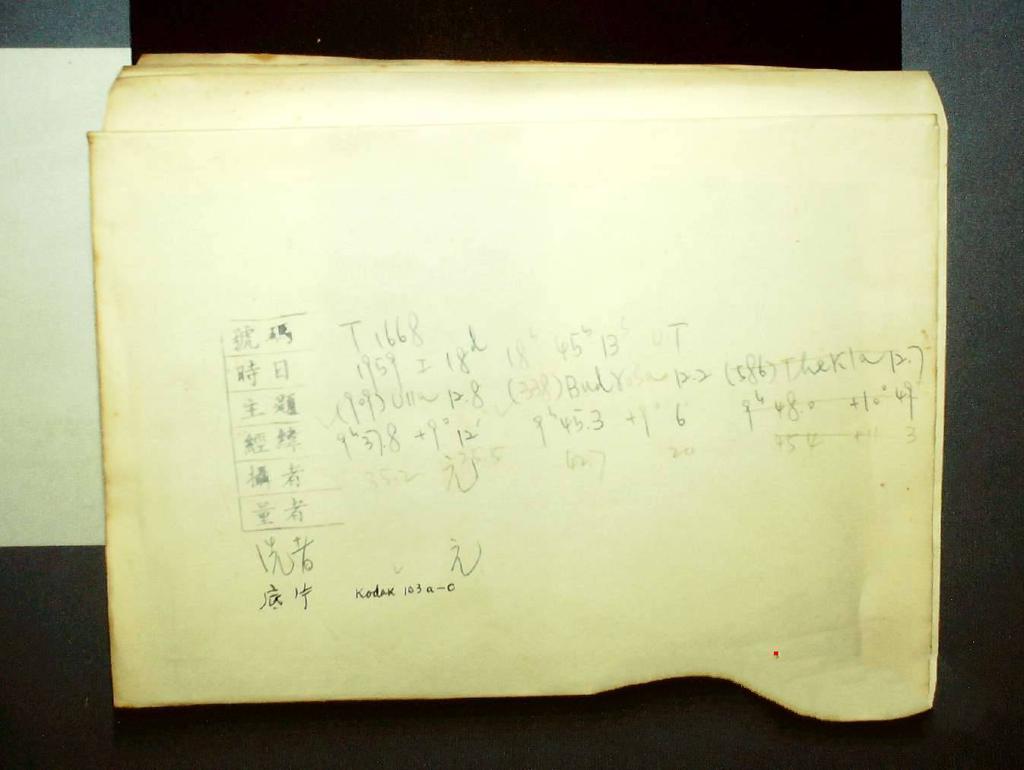 號碼 T 1668
時日 1959 I 18d 18h 45m 13s UT
主題 (909) Ulla 12.8 (338) Budrosa 12.2 (586) Thekla 12.7
經緯 9h 37.8 +9° 12' 9h 45.3 +9° 6 9h 48.0 +10° 49
35.2 25.5 42.7 20 45.4 +11 3
攝者 元
量者
洗者 元
底片 Kodak 103a-O